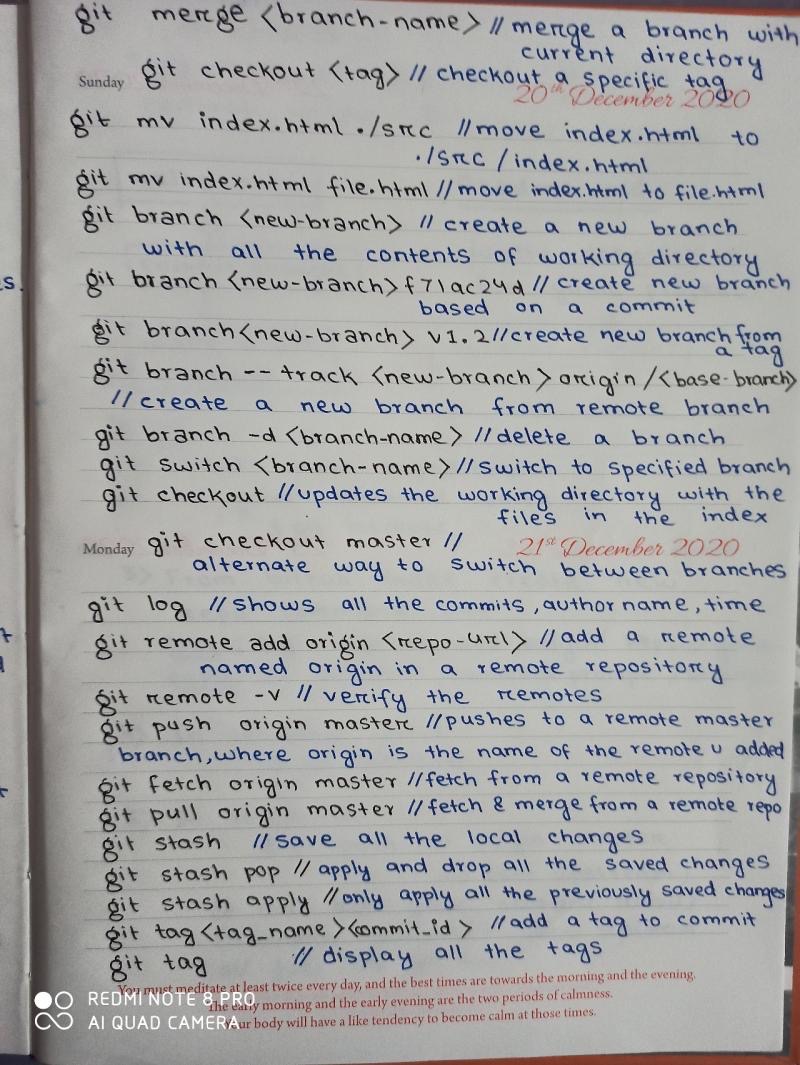 git merge <branch-name> // merge a branch with
current directory
Sunday git checkout <tag> // checkout a specific tag
20th December 2020
git mv index.html ./src // move index.html to
./src/index.html
git mv index.html file.html // move index.html to file.html
git branch <new-branch> // create a new branch
with all the contents of working directory
git branch <new-branch> f71ac24d // create new branch
based on a commit
git branch <new-branch> v1.2 // create new branch from
a tag
git branch --track <new-branch> origin/<base-branch>
// create a new branch from remote branch
git branch -d <branch-name> // delete a branch
git switch <branch-name> // switch to specified branch
git checkout // updates the working directory with the
files in the index
Monday git checkout master // 21st December 2020
alternate way to switch between branches
git log // shows all the commits, author name, time
git remote add origin <repo-url> // add a remote
named origin in a remote repository
git remote -v // verify the remotes
git push origin master // pushes to a remote master
branch, where origin is the name of the remote u added
git fetch origin master // fetch from a remote repository
git pull origin master // fetch & merge from a remote repo
git stash // save all the local changes
git stash pop // apply and drop all the saved changes
git stash apply // only apply all the previously saved changes
git tag <tag_name> <commit_id> // add a tag to commit
git tag // display all the tags
You must meditate at least twice every day, and the best times are towards the morning and the evening.
The early morning and the early evening are the two periods of calmness.
Your body will have a like tendency to become calm at those times.
REDMI NOTE 8 PRO
AI QUAD CAMERA